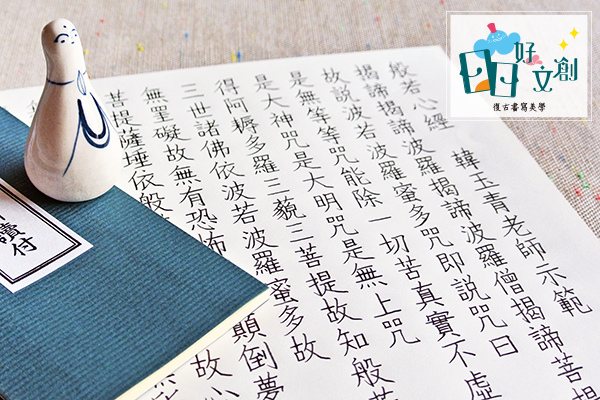 好文創
復古書寫美學
菩提薩埵依般
故心
無罣礙故無有恐怖
顛倒夢
三世諸佛依波若波羅蜜多故
得阿耨多羅三藐三菩提故知般若
是大神咒是大明咒是無上咒
是無等等咒能除一切苦真實不虛
故說波若波羅蜜多咒即說咒曰
揭諦揭諦波羅揭諦波羅僧揭諦菩提
般若心經 韓玉青老師示範
付